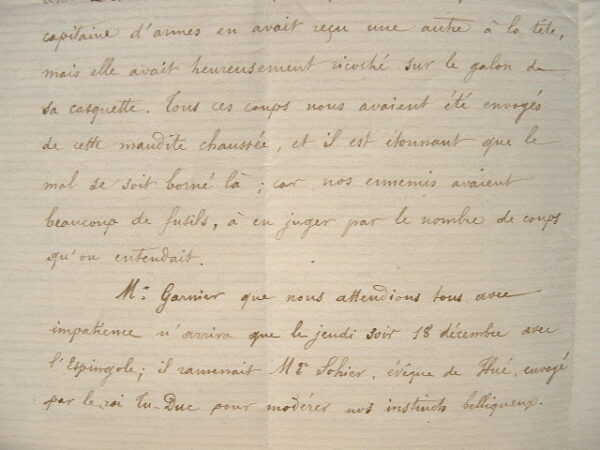 capitaine d'armes en avait reçu une autre à la tête,
mais elle avait heureusement ricoché sur le galon de
sa casquette. Tous ces coups nous avaient été envoyés
de cette maudite chaussée, et il est étonnant que le
mal se soit borné là ; car nos ennemis avaient
beaucoup de fusils, à en juger par le nombre de coups
qu'on entendait.
Mr. Garnier que nous attendions tous avec
impatience n'arriva que le jeudi soir 18 décembre avec
l'Espingole; il ramenait Mgr Sohier, évêque de Hué, envoyé
par le roi Tu-Duc pour modérer nos instincts belliqueux.